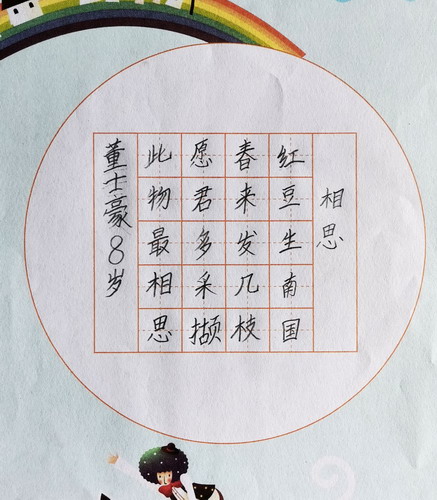 相思
红豆生南国
春来发几枝
愿君多采撷
此物最相思
董士豪8岁